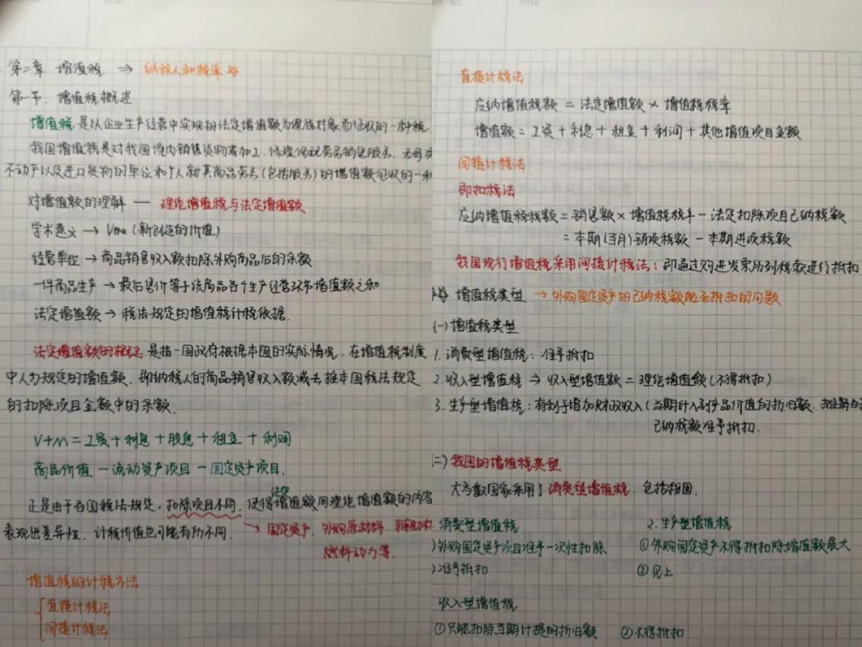 第二章 增值税 → 纳税人和税率
第一节. 增值税概述
增值税 是以企业生产经营中实现的法定增值额为课税对象而征收的一种税
我国增值税是对我国境内销售货物或加工、修理修配劳务销售服务、无形资
不动产以及进口货物的单位和个人就其商品劳务(包括服务)的增值额征收的一种
对增值额的理解 — 理论增值额与法定增值额
学术意义 → V+m (新创造的价值)
经营单位 → 商品销售收入额扣除外购商品后的余额
一件商品生产 → 最后售价等于该商品各个生产经营环节增值额之和
法定增值额 → 税法规定的增值税计税依据.
法定增值额的概念 是指一国政府根据本国的实际情况, 在增值税制度
中人为规定的增值额. 即纳税人的商品销售收入额减去按本国税法规定
的扣除项目金额中的余额.
V+m = 工资 + 利息 + 股息 + 租金 + 利润
商品价值 — 流动资产项目 — 固定资产项目.
正是由于各国税法规定, 扣除项目不同, 使得法定增值额同理论增值额的内容
表现出差异性. 计税价值也可能有所不同. → 固定资产, 外购原材料,
燃料动力等.
增值税的计税方法
直接计税法
间接计税法
直接计税法
应纳增值税额 = 法定增值额 × 增值税税率
增值额 = 工资 + 利息 + 租金 + 利润 + 其他增值项目金额
间接计税法
即扣税法
应纳增值税税额 = 销售额 × 增值税税率 — 法定扣除项目已纳税额
= 本期(当月)销项税额 - 本期进项税额
我国现行增值税采用间接计税法: 即通过购进发票所列税款进行抵扣
增值税类型 → 外购固定资产的已纳税额能否抵扣的问题
(一) 增值税类型
1. 消费型增值税: 准予抵扣
2. 收入型增值税 → 收入型增值额 = 理论增值额 (不得抵扣)
3. 生产型增值税: 有利于增加财政收入 (当期计入到产品价值的折旧额,
已纳税额准予抵扣.
(二) 我国的增值税类型
大多数国家采用了 消费型增值税, 包括我国.
消费型增值税
外购固定资产项目准予一次性扣除
准予抵扣
2. 生产型增值税
① 外购固定资产不得抵扣除增值额最大
② 同上
收入型增值税
① 只能扣除当期计提的折旧额 ② 不得抵扣